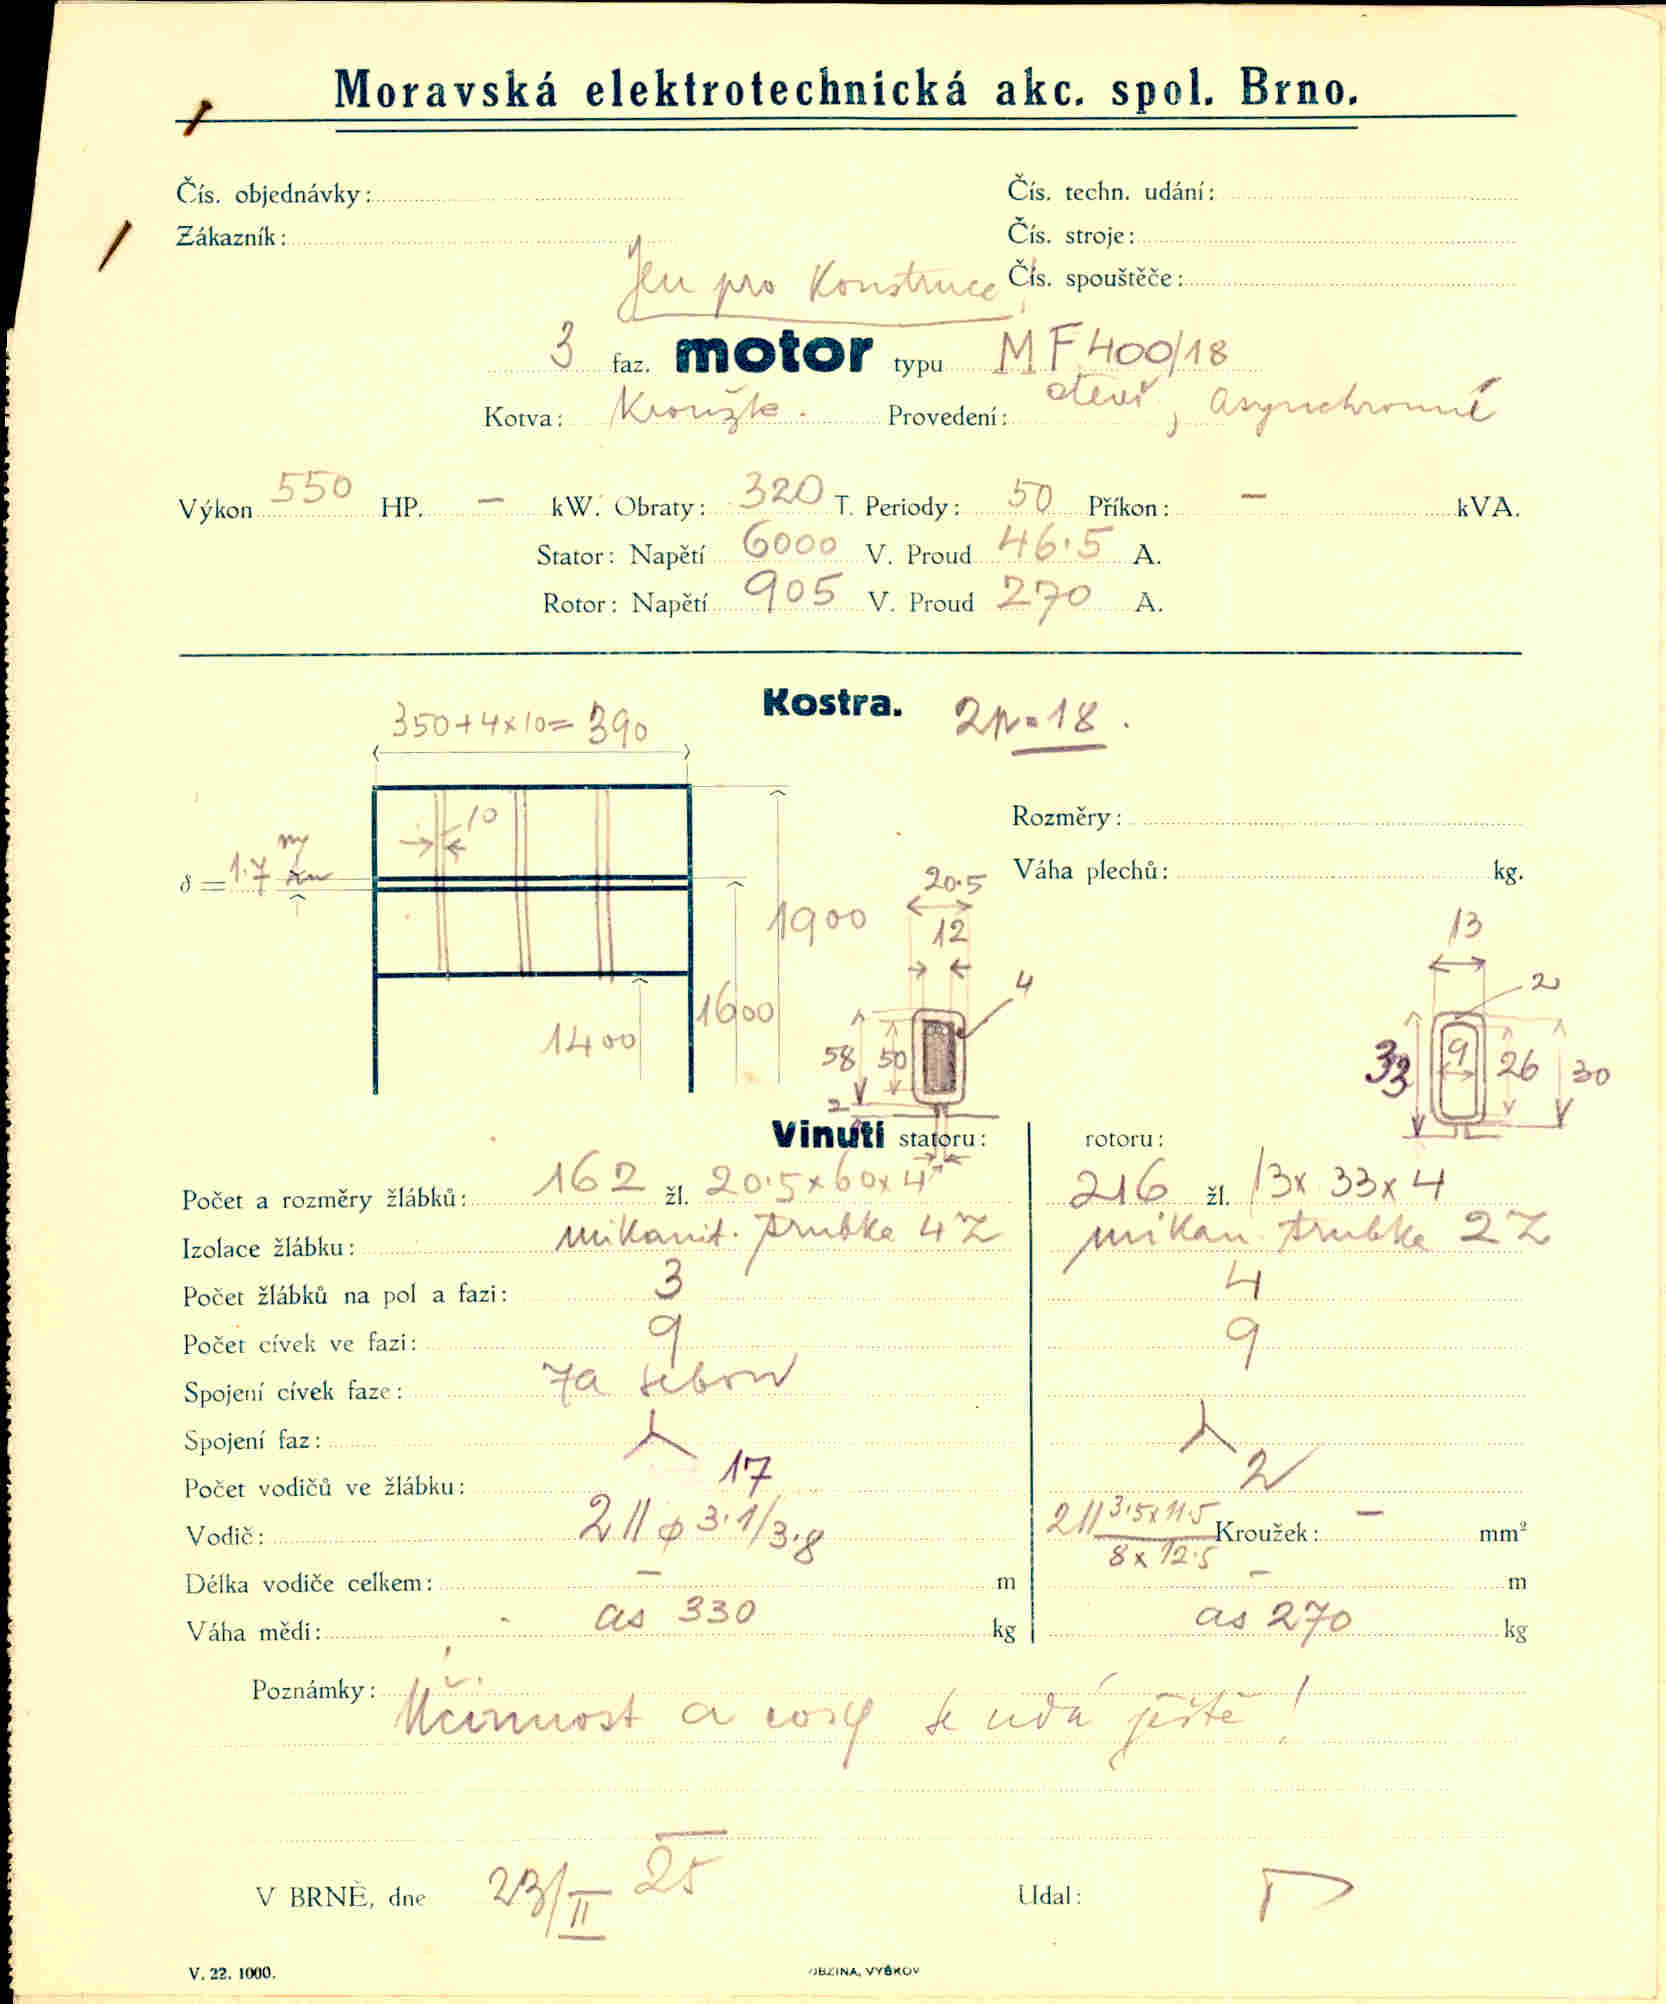 Moravská elektrotechnická akc. spol. Brno.
Čís. objednávky: Čís. techn. udání:
Zákazník: Čís. stroje:
Jen pro Konstrukce Čís. spouštěče:
3 faz. motor typu MF 400/18
Kotva: Kroužk. Provedení: otevř, asynchronní
Výkon 550 HP. – kW. Obraty: 320 T. Periody: 50 Příkon: – kVA.
Stator: Napětí 6000 V. Proud 46·5 A.
Rotor: Napětí 905 V. Proud 270 A.
Kostra. 2p=18.
350+4x10=390
10
Rozměry:
δ = 1·7
Váha plechů: kg.
1900
1600
1400
20·5
12
4
58 50
2
13
2
33 9 26 30
Vinutí statoru: rotoru:
Počet a rozměry žlábků: 162 žl. 20·5x60x4 216 žl. 13x33x4
Izolace žlábku: mikanit. trubka 4 mikan. trubka 2
Počet žlábků na pol a fazi: 3 4
Počet cívek ve fazi: 9 9
Spojení cívek faze: za sebou
Spojení faz:
Počet vodičů ve žlábku: 17 2
Vodič: 2 || φ 3·1/3·8 2 || 3·5x11·5 Kroužek: – mm²
8x12·5
Délka vodiče celkem: – m – m
Váha mědi: as 330 kg as 270 kg
Poznámky: Účinnost a cosφ se udá ještě!
V BRNĚ, dne 23/II 25 Udal:
V. 22. 1000. OBZINA, VYŠKOV